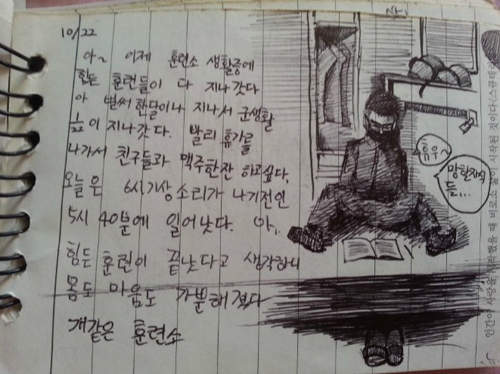 10/22
아~ 이제 훈련소 생활중에
힘든 훈련들이 다 지나갔다
아 벌써 한달이나 지나서 군생활
이 지나갔다. 빨리 휴가를
나가서 친구들과 맥주한잔 하고싶다.
오늘은 6시기상 소리가 나기전인
5시 40분에 일어났다. 아..
힘든 훈련이 끝났다고 생각하니
몸도 마음도 가뿐해졌다
개같은 훈련소
힘우
망할자식
들...